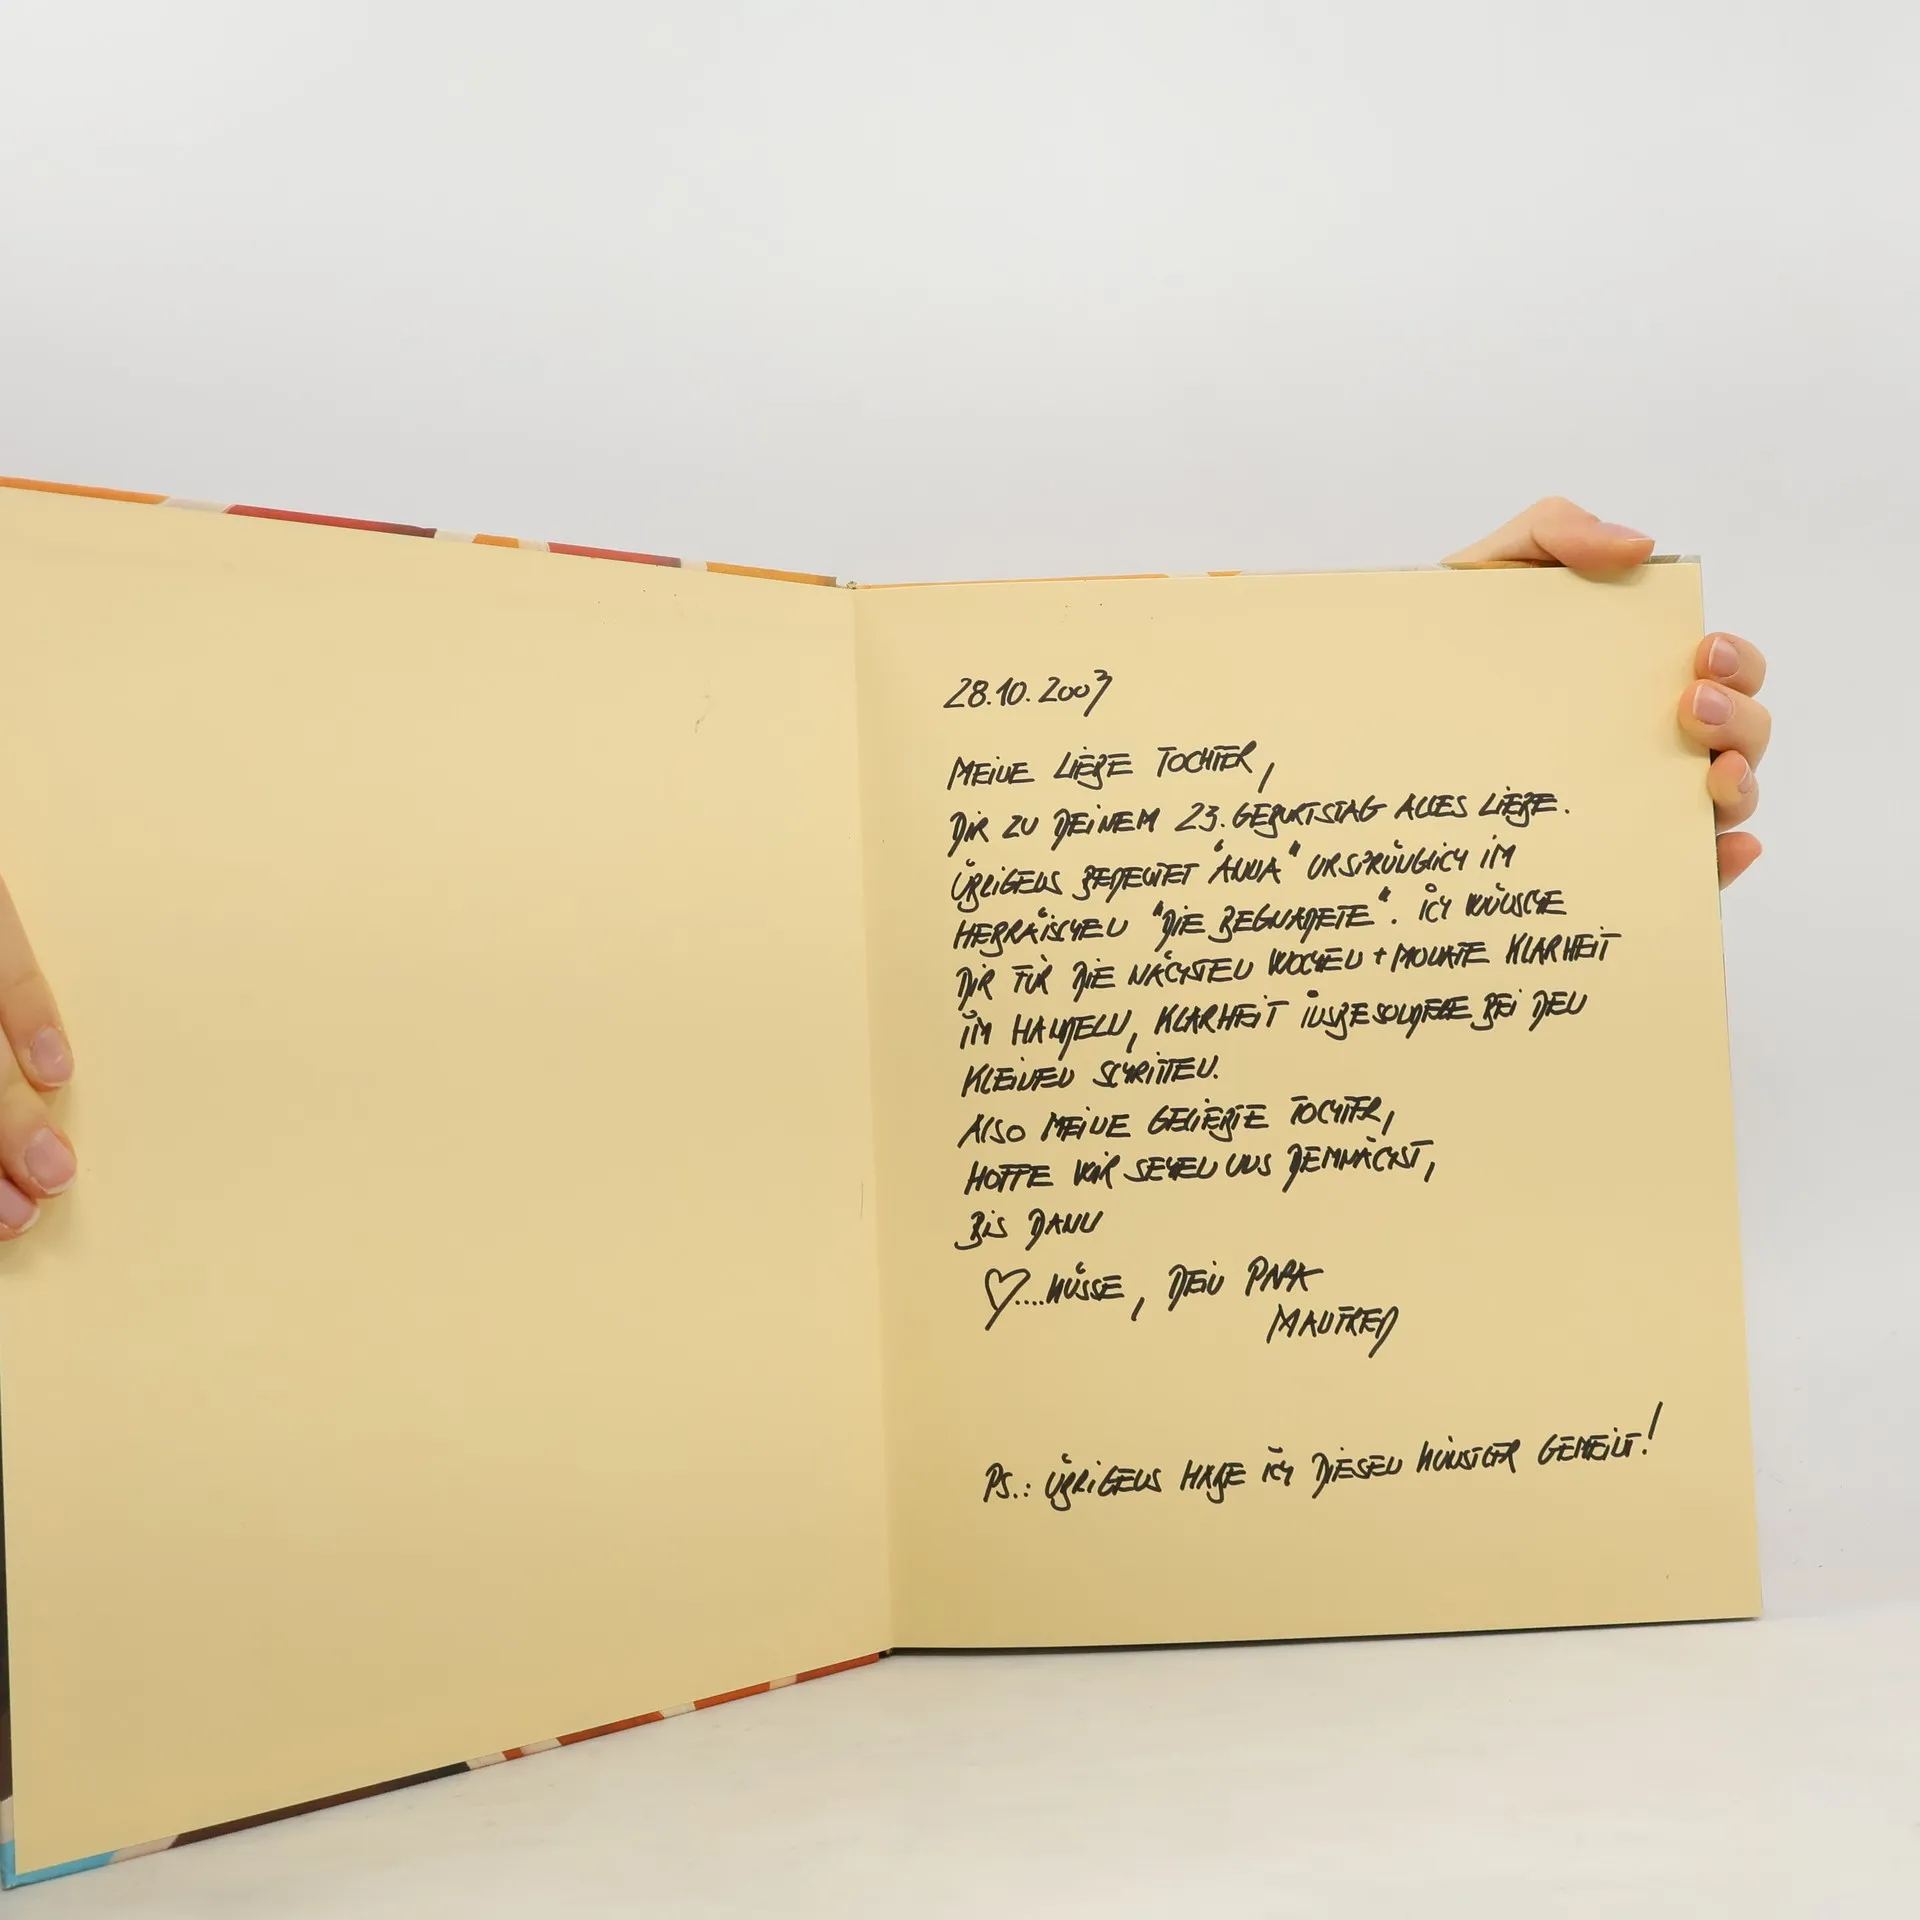 28.10.2003
MEINE LIEBE TOCHTER,
DIR ZU DEINEM 23. GEBURTSTAG ALLES LIEBE.
ÜBRIGENS BEDEUTET "ANNA" URSPRÜNGLICH IM
HEBRÄISCHEN "DIE BEGNADETE". ICH WÜNSCHE
DIR FÜR DIE NÄCHSTEN WOCHEN + MONATE KLARHEIT
IM HANDELN, KLARHEIT INSBESONDERE BEI DEN
KLEINEN SCHRITTEN.
ALSO MEINE GELIEBTE TOCHTER,
HOFFE WIR SEHEN UNS DEMNÄCHST,
BIS DANN
♡....KÜSSE, DEIN PAPA
MANFRED
PS.: ÜBRIGENS HABE ICH DIESEN KÜNSTLER GEMEINT!